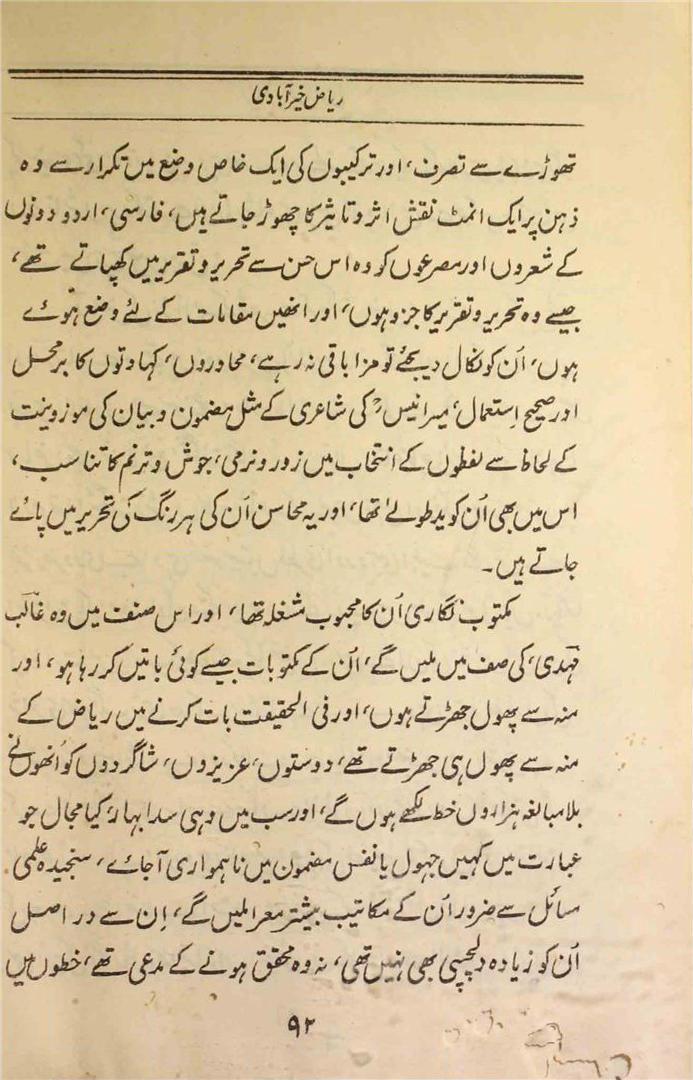 ریاض خیرآبادی
تھوڑے سے تصرف، اور ترکیبوں کی ایک خاص وضع میں تکرار سے وہ
ذہن پر ایک انمٹ نقش اثر و تاثیر کا چھوڑ جاتے ہیں، فارسی، اردو دونوں
کے شعروں اور مصرعوں کو وہ اس حسن سے تحریر و تقریر میں کھپاتے تھے،
جیسے وہ تحریر و تقریر کا جزو ہوں، اور انھیں مقامات کے لئے وضع ہوئے
ہوں، اُن کو نکال دیجئے تو مزا باقی نہ رہے، محاوروں، کہاوتوں کا برمحل
اور صحیح استعمال، میر انیسؔ کی شاعری کے مثل مضمون و بیان کی موزونیت
کے لحاظ سے لفظوں کے انتخاب میں زور و نرمی، جوش و ترنم کا تناسب،
اس میں بھی اُن کو ید طولےٰ تھا، اور یہ محاسن اُن کی ہر رنگ کی تحریر میں پائے
جاتے ہیں۔
مکتوب نگاری اُن کا محبوب مشغلہ تھا، اور اس صنف میں وہ غالبؔ
مہدی، کی صف میں ملیں گے، اُن کے مکتوبات جیسے کوئی باتیں کر رہا ہو، اور
منہ سے پھول جھڑتے ہوں، اور فی الحقیقت بات کرنے میں ریاض کے
منہ سے پھول ہی جھڑتے تھے، دوستوں، عزیزوں، شاگردوں کو اُنھوں نے
بلامبالغہ ہزاروں خط لکھے ہوں گے، اور سب میں وہی سدا بہار، کیا مجال جو
عبارت میں کہیں جھول یا نفس مضمون میں ناہمواری آجائے، سنجیدہ علمی
مسائل سے ضرور اُن کے مکاتیب بیشتر معرا ملیں گے، اِن سے در اصل
اُن کو زیادہ دلچسپی بھی نہیں تھی، نہ وہ محقق ہونے کے مدعی تھے، خطوں میں
۹۲